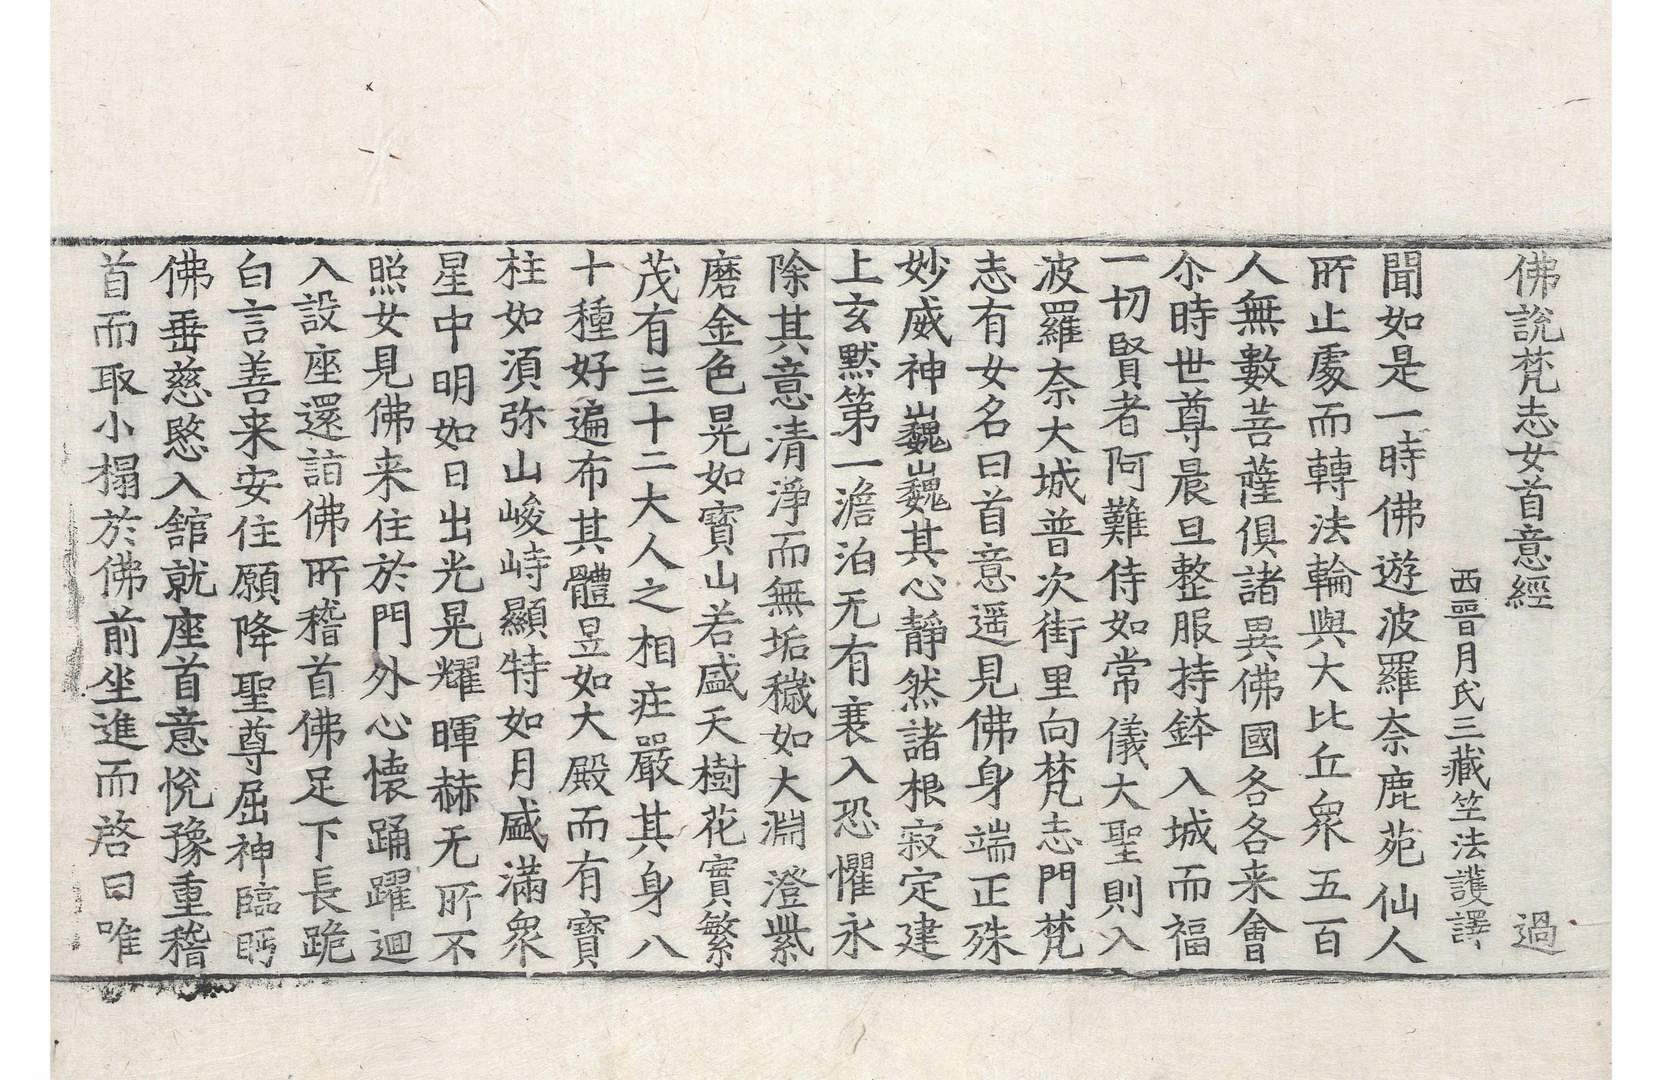 佛說梵志女首意經　過
西晉月氏三藏竺法護譯
聞如是一時佛遊波羅奈鹿苑仙人
所止處而轉法輪與大比丘衆五百
人無數菩薩俱諸異佛國各各来會
尒時世尊晨旦整服持鉢入城而福
一切賢者阿難侍如常儀大聖則入
波羅奈大城普次街里向梵志門梵
志有女名曰首意遥見佛身端正殊
妙威神巍巍其心靜然諸根寂定建
上玄默第一澹泊无有衰入恐懼永
除其意清淨而無垢穢如大淵澄紫
磨金色晃如寶山若盛天樹花實繁
茂有三十二大人之相疘嚴其身八
十種好遍布其體昱如大殿而有寶
柱如須弥山峻峙顯特如月盛滿衆
星中明如日出光晃耀暉赫无所不
照女見佛来住於門外心懐踊躍迴
入設座還詣佛所稽首佛足下長跪
白言善来安住願降聖尊屈神臨眄
佛垂慈愍入舘就座首意悅豫重稽
首而取小榻於佛前坐進而啓曰唯